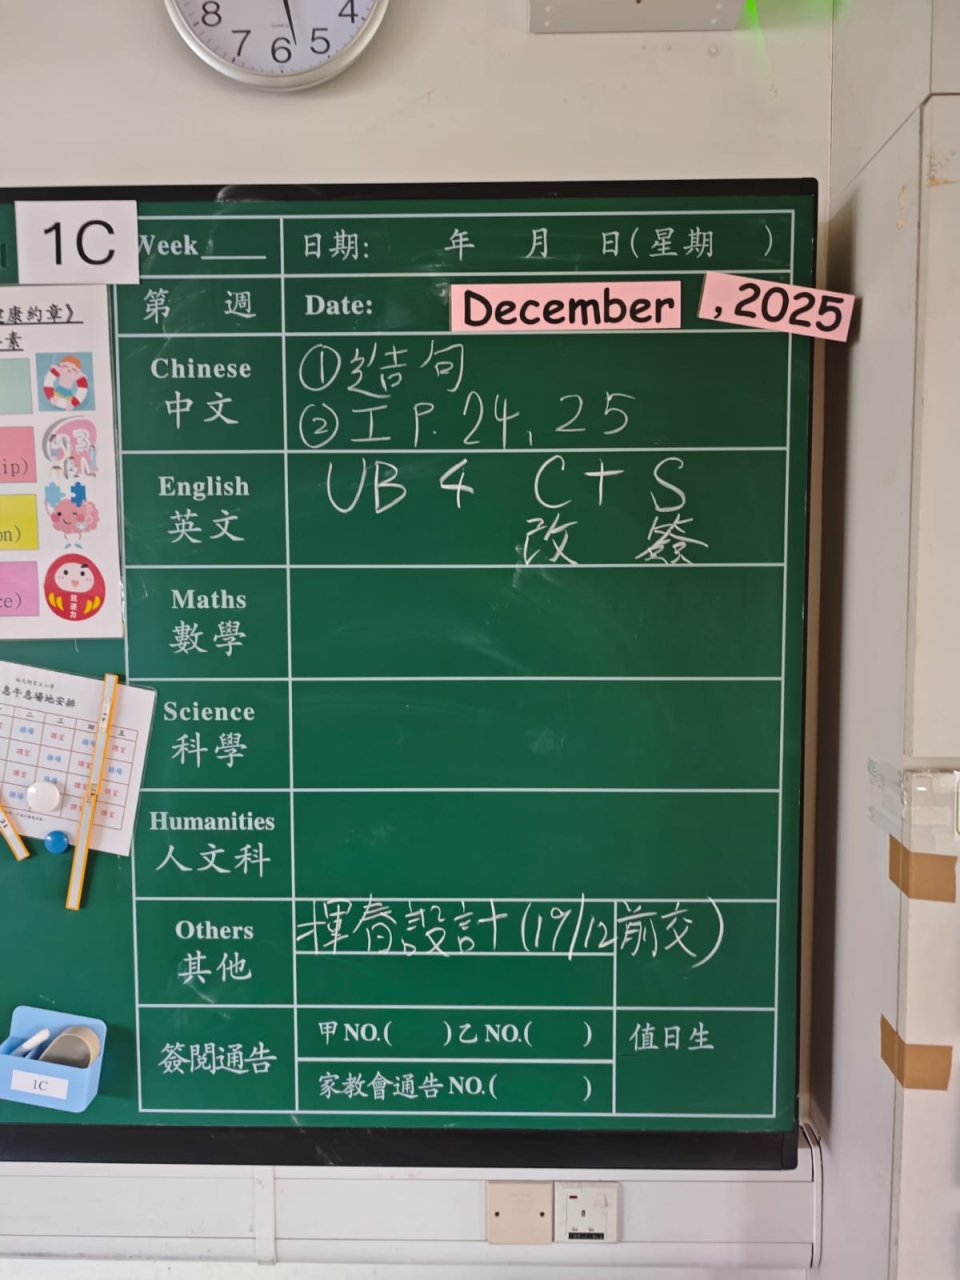 8 7 6 5 4
1C
Week____ 日期: 年 月 日(星期 )
第 週 Date: December , 2025
康約章》
素
ip)
on)
ce)
Chinese
中文
①造句
②工 P. 24, 25
English
英文
UB 4 C + S
改 簽
Maths
數學
Science
科學
息午息場地安排
二 三 四 五
Humanities
人文科
Others
其他
揮春設計(19/12前交)
簽閱通告
甲 NO.( )乙 NO.( )
家教會通告 NO.( )
值日生
1C